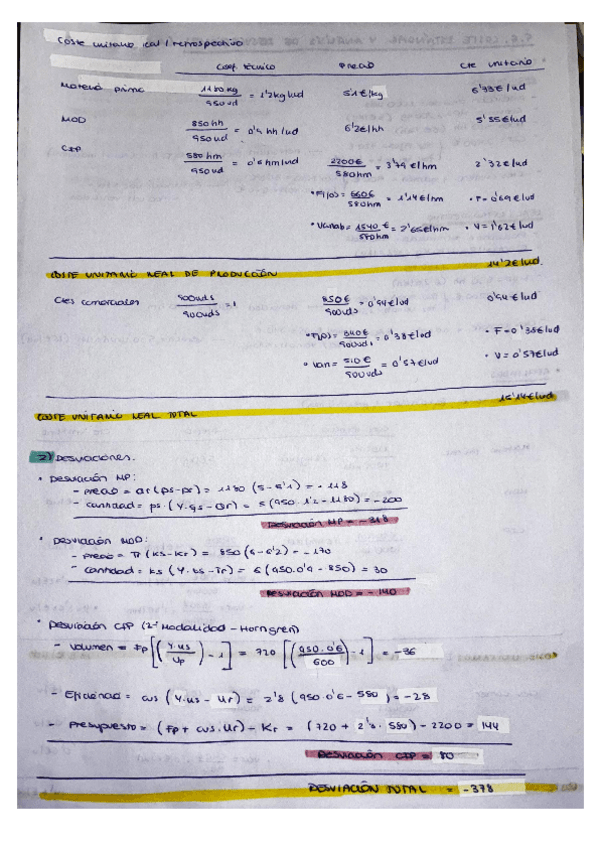 Coste unitario real / retrospectivo
Coef técnico Precio Cte unitario
Materia prima 1180 kg / 950 ud = 1'2 kg/ud 5'1 €/kg 6'33 €/ud
MOD 850 hh / 950 ud = 0'9 hh/ud 6'2 €/hh 5'55 €/ud
CIP 580 hm / 950 ud = 0'6 hm/ud 2200 € / 580 hm = 3'79 €/hm 2'32 €/ud
• Fijos = 660 € / 580 hm = 1'14 €/hm • F = 0'69 €/ud
• Variab = 1540 € / 580 hm = 2'65 €/hm • V = 1'62 €/ud
COSTE UNITARIO REAL DE PRODUCCIÓN 14'2 €/ud.
Ctes comerciales 900 uds / 900 uds = 1 850 € / 900 uds = 0'94 €/ud 0'94 €/ud
• Fijos = 340 € / 900 uds = 0'38 €/ud • F = 0'38 €/ud
• Var = 510 € / 900 uds = 0'57 €/ud • V = 0'57 €/ud
COSTE UNITARIO REAL TOTAL 15'14 €/ud
2) DESVIACIONES.
• Desviación MP:
- Precio = Qr (ps - pr) = 1180 (5 - 5'1) = - 118
- cantidad = ps · (Y · qs - Qr) = 5 (950 · 1'2 - 1180) = -200
Desviación MP = - 318
• Desviación MOD:
- Precio = Tr (Ks - Kr) = 850 (6 - 6'2) = - 170
- Cantidad = Ks (Y · ts - Tr) = 6 (950 · 0'9 - 850) = 30
Desviación MOD = - 140
• Desviación CIP (2ª Modalidad - Horngren)
- Volumen = Fp [(Y · us / Up) - 1] = 720 [(950 · 0'6 / 600) - 1] = -36
- Eficiencia = cvs (Y · us - Ur) = 2'8 (950 · 0'6 - 580) = -28
- Presupuesto = (Fp + cvs · Ur) - Kr = (720 + 2'8 · 580) - 2200 = 144
Desviación CIP = 80
DESVIACIÓN TOTAL = -378